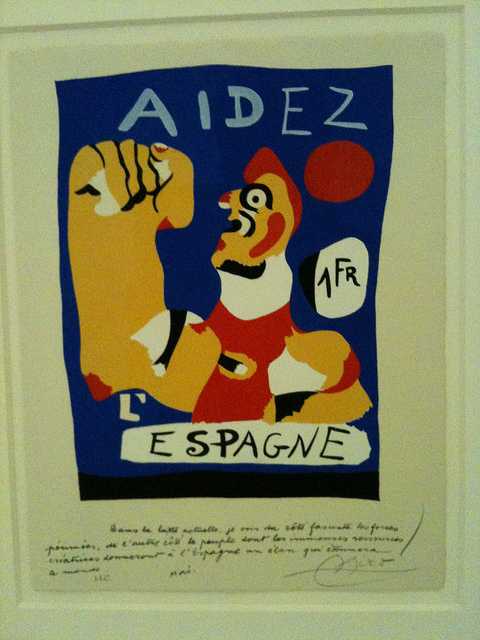 AIDEZ
1FR
L'
ESPAGNE
Dans la lutte actuelle, je vois du côté fasciste les forces
périmées, de l'autre côté le peuple dont les immenses ressources
créatrices donneront à l'Espagne un élan qui étonnera
le monde
Miró.
H.C. Miró